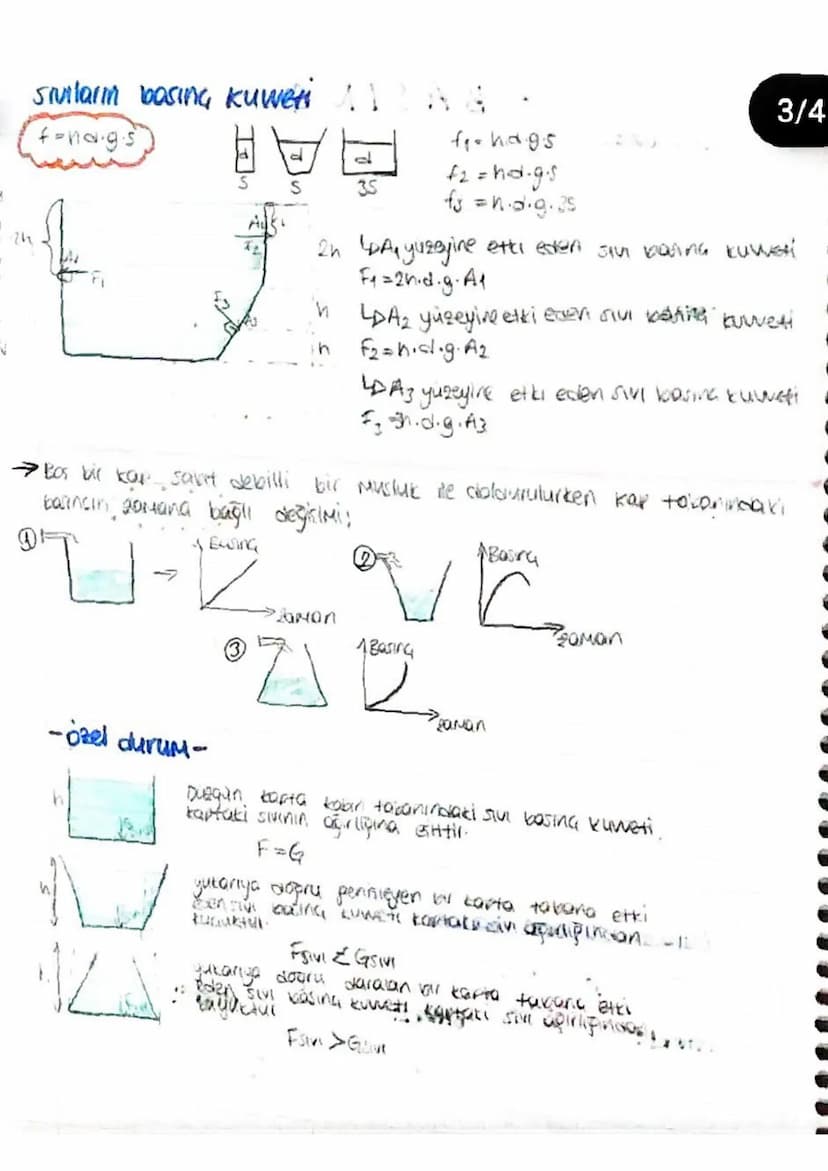 sıvıların basınç kuvveti
3/4
f=hd.g.s
d d d
S S 3S
f1=hdgs
f2=hd.g.s
f3=h.d.g.3s
2h
A1
F1
A2
F2
F3
A3
2h
h
h
A1 yüzeyine etki eden sıvı basınç kuvveti
F1=2h.d.g.A1
A2 yüzeyine etki eden sıvı basınç kuvveti
F2=h.d.g.A2
A3 yüzeyine etki eden sıvı basınç kuvveti
F3=3h.d.g.A3
→ Boş bir kap sabit debilli bir musluk ile doldurulurken kap tabanındaki
basıncın zamana bağlı değişimi;
① → Basınç
zaman
② Basınç
zaman
③ Basınç
zaman
-özel durum-
h
Düzgün kapta kabın tabanındaki sıvı basınç kuvveti
kaptaki sıvının ağırlığına eşittir.
F=G
h
yukarıya doğru genişleyen bir kapta tabana etki
eden sıvı basınç kuvveti kaptaki sıvı ağırlığından
küçüktür.
Fsıvı < Gsıvı
yukarıya doğru daralan bir kapta tabana etki
eden sıvı basınç kuvveti kaptaki sıvı ağırlığından
büyüktür
Fsıvı > Gsıvı